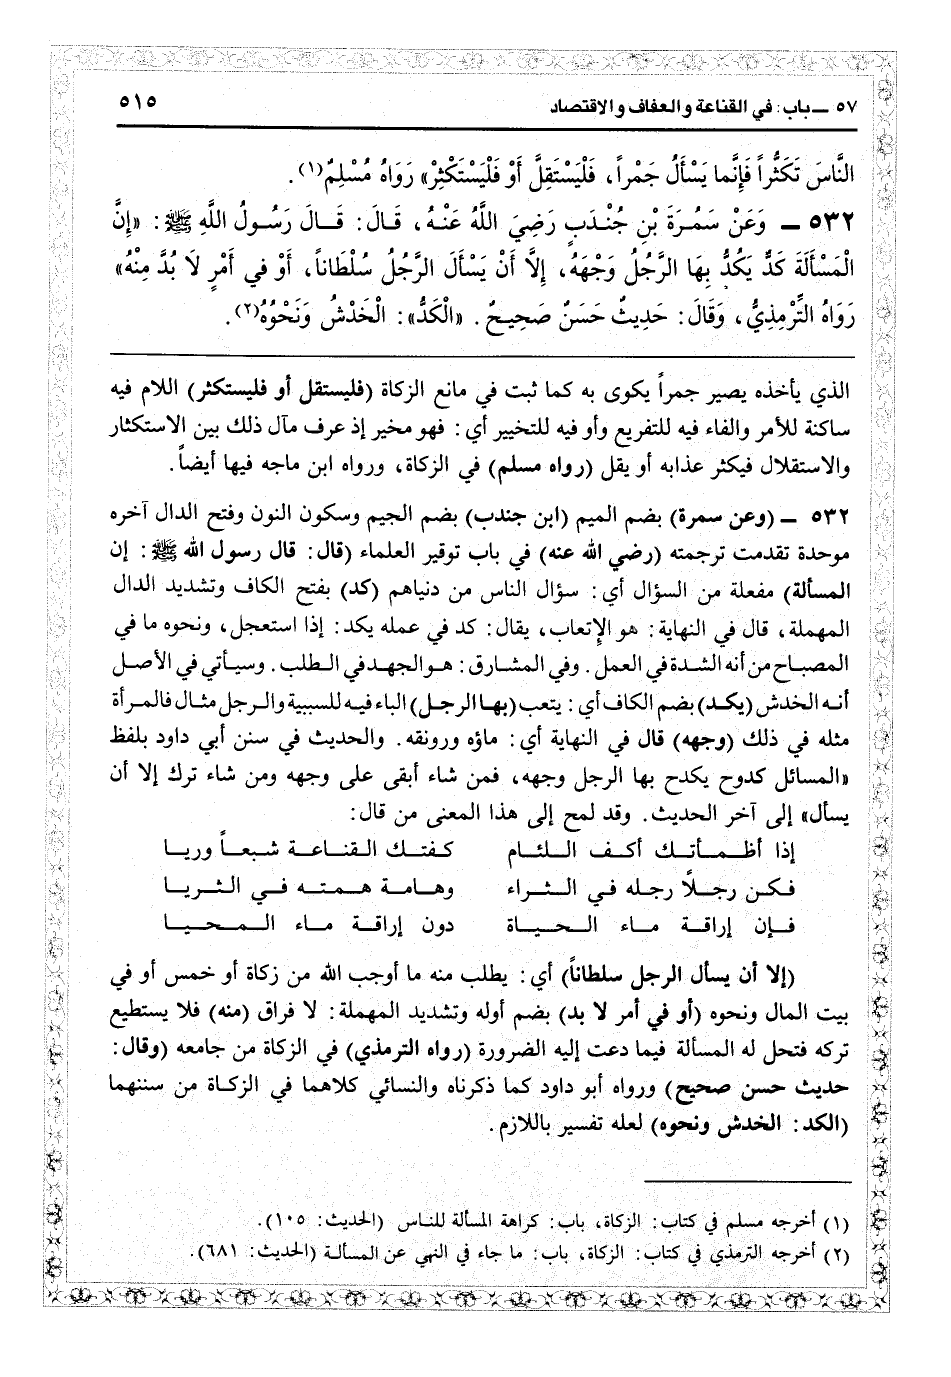 ٥٧ ــ باب: في القناعة والعفاف والاقتصاد ٥١٥
النَّاسَ تَكَثُّراً فَإِنَّما يَسْأَلُ جَمْراً، فَلْيَسْتَقِلَّ أَوْ فَلْيَسْتَكْثِرْ» رَوَاهُ مُسْلِمٌ(١).
٥٣٢ ــ وَعَنْ سَمُرَةَ بْنِ جُنْدَبٍ رَضِيَ اللَّهُ عَنْهُ، قَالَ: قَالَ رَسُولُ اللَّهِ ﷺ: «إِنَّ
الْمَسْأَلَةَ كَدٌّ يَكُدُّ بِهَا الرَّجُلُ وَجْهَهُ، إِلَّا أَنْ يَسْأَلَ الرَّجُلُ سُلْطَاناً، أَوْ في أَمْرٍ لَا بُدَّ مِنْهُ»
رَوَاهُ التِّرْمِذِيُّ، وَقَالَ: حَدِيثٌ حَسَنٌ صَحِيحٌ. «الْكَدُّ»: الْخَدْشُ وَنَحْوُهُ(٢).
الذي يأخذه يصير جمراً يكوى به كما ثبت في مانع الزكاة (فليستقل أو فليستكثر) اللام فيه
ساكنة للأمر والفاء فيه للتفريع وأو فيه للتخيير أي: فهو مخير إذ عرف مآل ذلك بين الاستكثار
والاستقلال فيكثر عذابه أو يقل (رواه مسلم) في الزكاة، ورواه ابن ماجه فيها أيضاً.
٥٣٢ ــ (وعن سمرة) بضم الميم (ابن جندب) بضم الجيم وسكون النون وفتح الدال آخره
موحدة تقدمت ترجمته (رضي الله عنه) في باب توقير العلماء (قال: قال رسول الله ﷺ: إن
المسألة) مفعلة من السؤال أي: سؤال الناس من دنياهم (كد) بفتح الكاف وتشديد الدال
المهملة، قال في النهاية: هو الإتعاب، يقال: كد في عمله يكد: إذا استعجل، ونحوه ما في
المصباح من أنه الشدة في العمل. وفي المشارق: هو الجهد في الطلب. وسيأتي في الأصل
أنه الخدش (يكد) بضم الكاف أي: يتعب (بها الرجل) الباء فيه للسببية والرجل مثال فالمرأة
مثله في ذلك (وجهه) قال في النهاية أي: ماؤه ورونقه. والحديث في سنن أبي داود بلفظ
«المسائل كدوح يكدح بها الرجل وجهه، فمن شاء أبقى على وجهه ومن شاء ترك إلا أن
يسأل» إلى آخر الحديث. وقد لمح إلى هذا المعنى من قال:
إذا أظمأتك أكف اللئام كفتك القناعة شبعاً وريا
فكن رجلاً رجله في الثراء وهامة همته في الثريا
فإن إراقة ماء الحياة دون إراقة ماء المحيا
(إلا أن يسأل الرجل سلطاناً) أي: يطلب منه ما أوجب الله من زكاة أو خمس أو في
بيت المال ونحوه (أو في أمر لا بد) بضم أوله وتشديد المهملة: لا فراق (منه) فلا يستطيع
تركه فتحل له المسألة فيما دعت إليه الضرورة (رواه الترمذي) في الزكاة من جامعه (وقال:
حديث حسن صحيح) ورواه أبو داود كما ذكرناه والنسائي كلاهما في الزكاة من سننهما
(الكد: الخدش ونحوه) لعله تفسير باللازم.
(١) أخرجه مسلم في كتاب: الزكاة، باب: كراهة المسألة للناس (الحديث: ١٠٥).
(٢) أخرجه الترمذي في كتاب: الزكاة، باب: ما جاء في النهي عن المسألة (الحديث: ٦٨١).